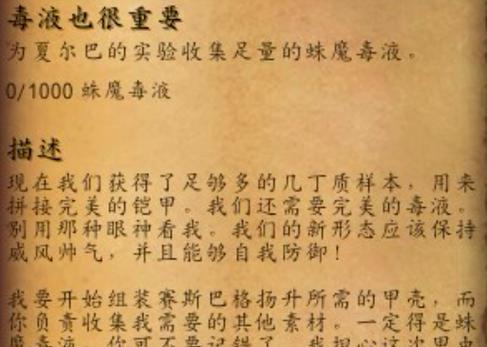 毒液也很重要
为夏尔巴的实验收集足量的蛛魔毒液。
0/1000 蛛魔毒液
描述
现在我们获得了足够多的几丁质样本，用来
拼接完美的铠甲。我们还需要完美的毒液。
别用那种眼神看我。我们的新形态应该保持
威风帅气，并且能够自我防御！
我要开始组装赛斯巴格扬升所需的甲壳，而
你负责收集我需要的其他素材。一定得是蛛
魔毒液，你可不要记错了。我担心这次里虫